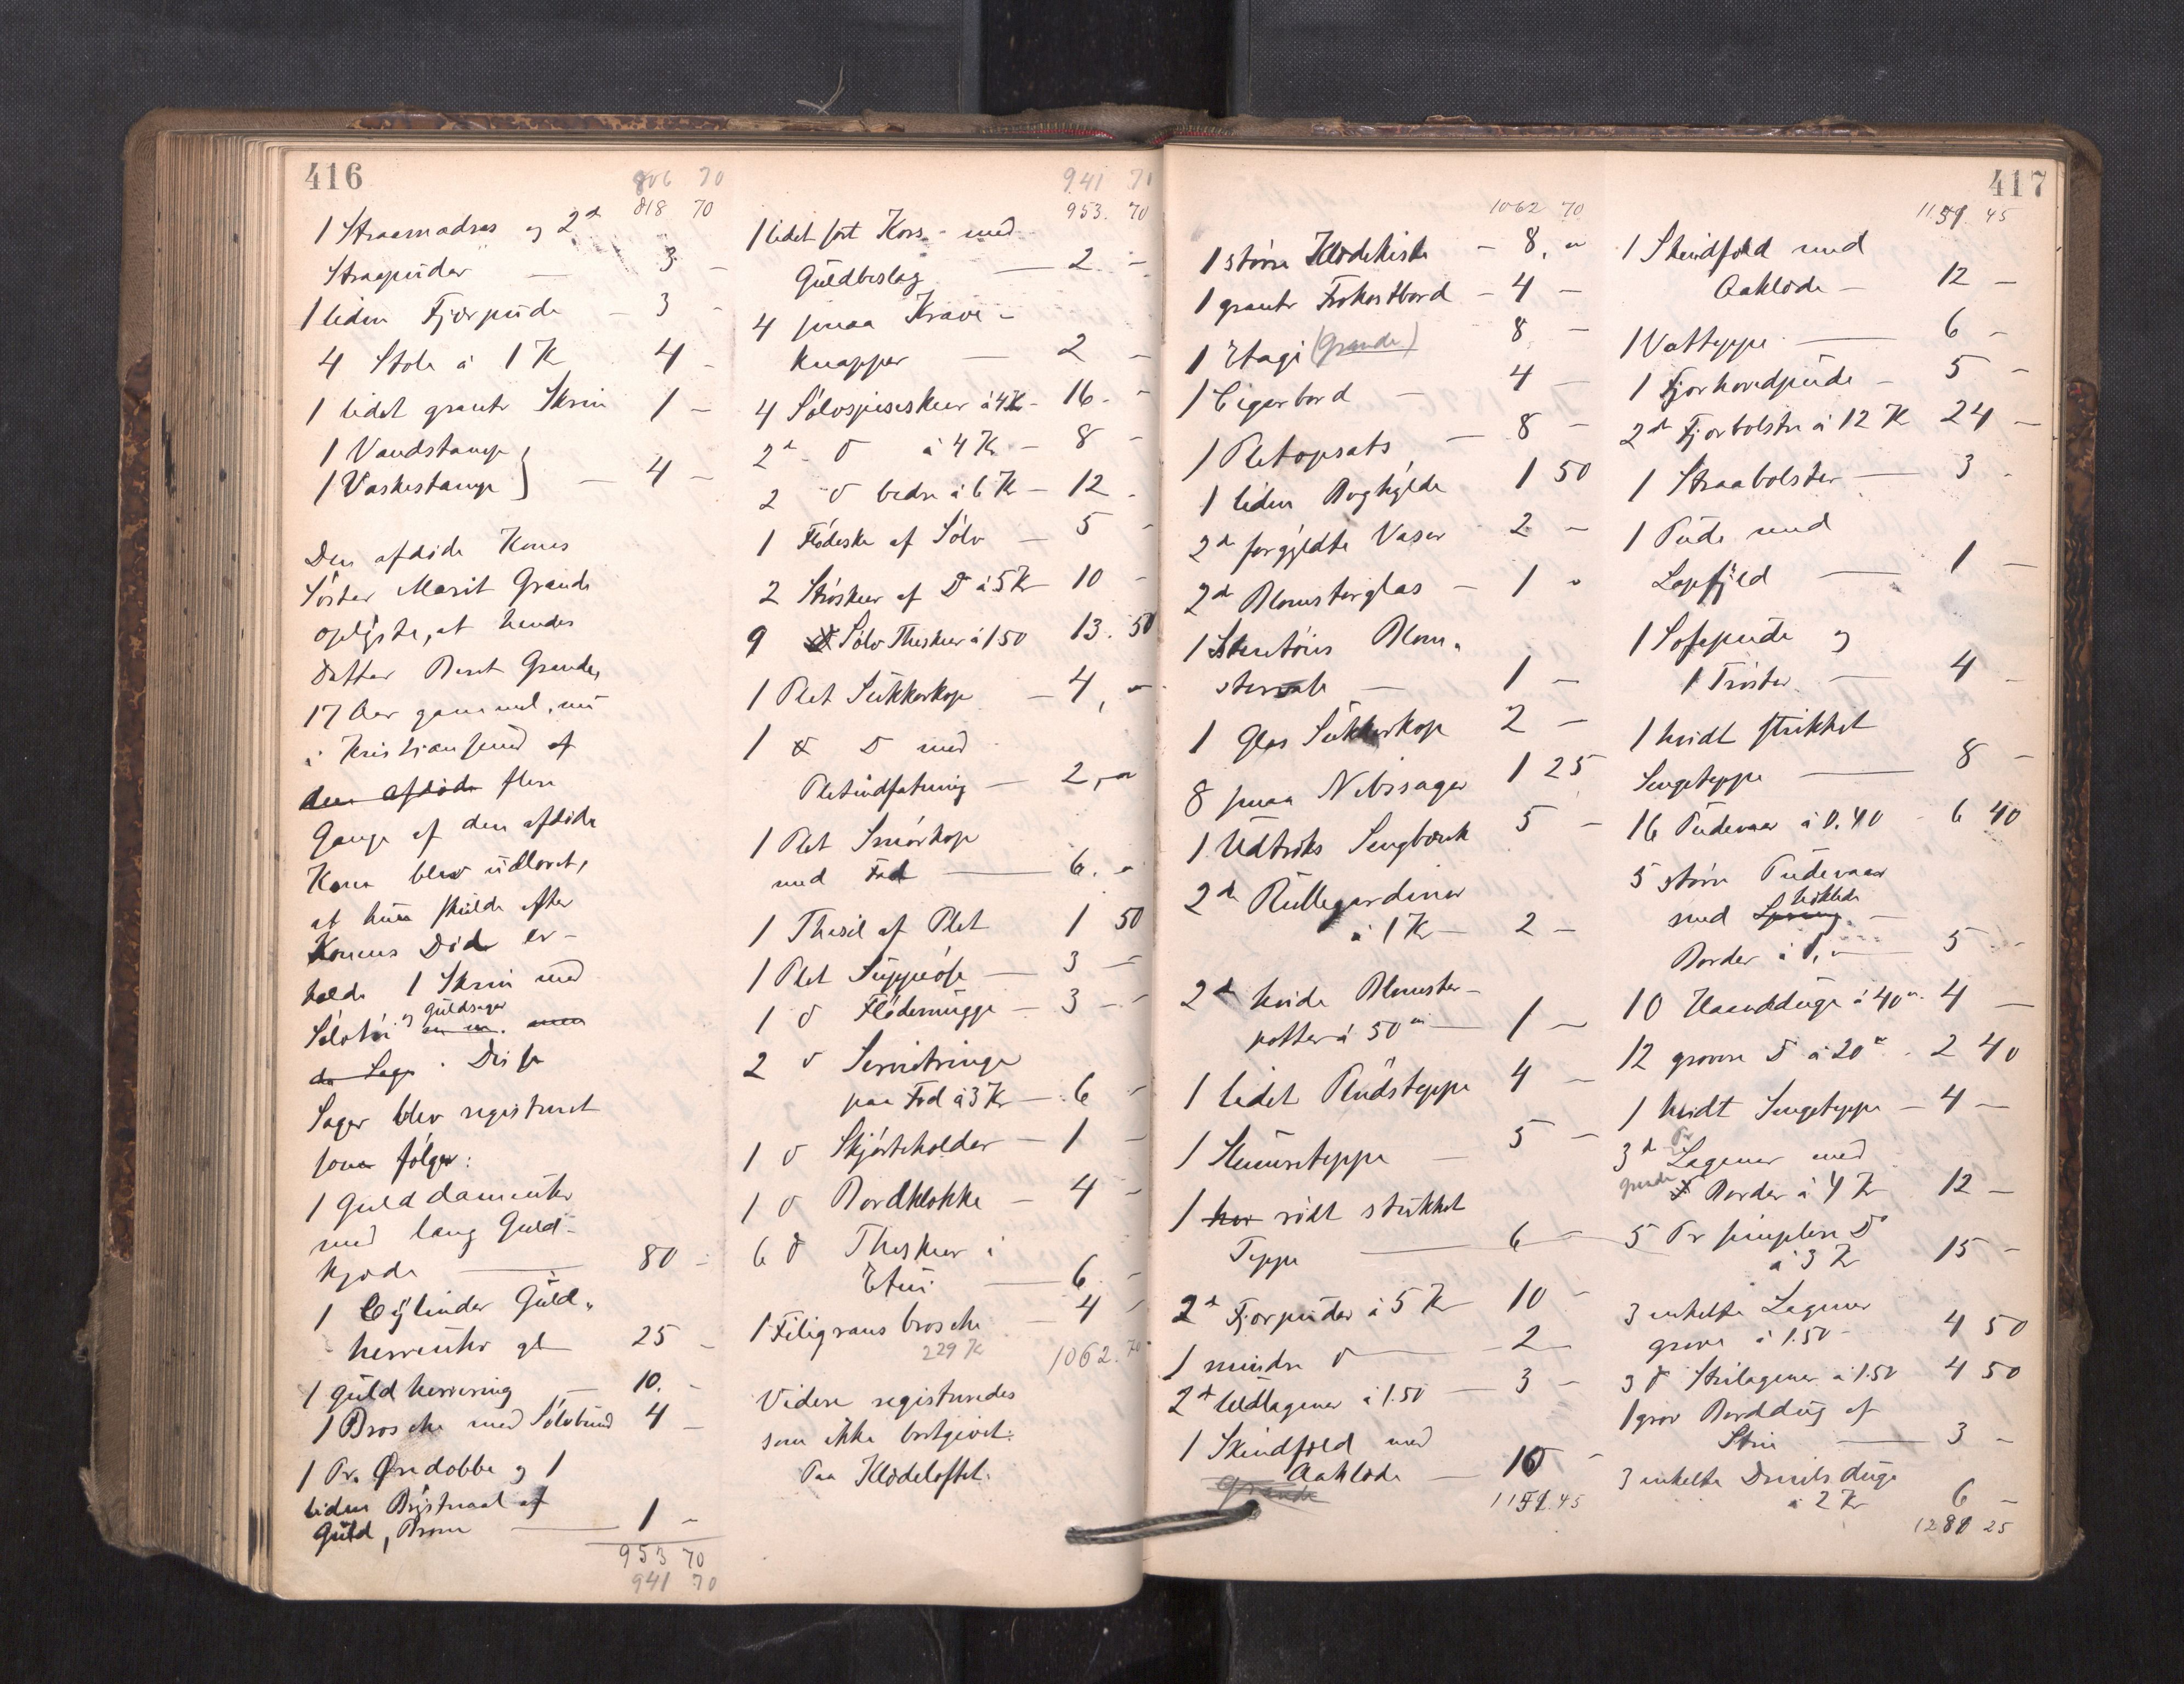 416
806 70
818 70
1 Straamadras og 2de
Straapuder — 3 -
1 liden Fjærpude — 3 -
4 Stole á 1 Kr 4 -
1 lidet grønt Skrin 1 -
1 Vandstamp
1 Vaskestamp } — 4 -
Den afdøde Kones
Søster Marit Grande
oplyste, at hendes
Datter Beret Grande,
17 Aar gammel, nu
i Kristiansund af
den afdøde flere
Gange af den afdøde
Kone blev udlovet,
at hun skulde efter
Konens Død er-
holde 1 Skrin med
Sølvtøi og Guldsager
de Sage. Disse
Sager blev registreret
som følger:
1 Guld dameuhr
med lang Guld-
kjæde — 80 -
1 Cylinder Guld-
herreuhr gl 25 -
1 Guld herrering — 10. -
1 Brosche med Sølvbund 4 -
1 Pr. Øredobbe og 1
liden Brystnaal af
Guld, — 1 -
953 70
941 70
941 70
953. 70
1 lidet sort Kors - med
Guldbeslag — 2 -
4 smaa Krave-
knapper — 2 -
4 Sølvspiseskeer á 4 Kr - 16. -
2de D á 4 Kr - 8 -
2 D bedre á 6 Kr - 12 -
1 Flødeske af Sølv — 5 -
2 Strøskeer af D á 5 Kr 10 -
9 Sølv Theskeer á 1 50 13. 50
1 Plet Sukkerkop — 4, -
1 D med
Pletindfatning — 2, -
1 Plet Smørkop
med Fad — 6. -
1 Thesil af Plet 1 50
1 Plet Suppeøse — 3 -
1 D Flødemugge — 3 -
2 D Servietringe
paa Fod á 3 Kr — 6 -
1 D Skjørteholder — 1 -
1 D Bordklokke — 4 -
6 D Theskeer i
Etui — 6 -
1 Filigrans brosche — 4 -
229 K 1062. 70
Videre registreredes
som ikke bortgivet:
Paa Klædeloftet.
417
1062 70
1 større Klædekiste — 8, -
1 grønt Frokostbord — 4 -
1 Etagé (Grande) 8 -
1 Cigarbord — 4 -
1 Pletopsats — 8 -
1 liden Boghylde 1 50
2de forgyldte Vaser 2 -
2de Blomsterglas — 1 -
1 Stentøis Blom-
stervase — 1 -
1 Glas Sukkerkop 2 -
8 smaa Nibssager 1 25
1 Udtræks Sengbænk 5 -
2de Rullegardiner
á 1 Kr — 2 -
2de hvide Blomster-
potter á 50 — 1 -
1 lidet Pludsteppe 4 -
1 — 5 -
1 rødt strikket
Teppe — 6 -
2de Fjærpuder á 5 Kr 10 -
1 mindre D — 2 -
2de Uldlagener á 1.50 — 3 -
1 Skindfeld med
Aaklæde — 10 -
Grande
1151.45
1151 45
1 Skindfeld med
Aaklæde — 12 -
1 Vatteppe — 6 -
1 Fjærhovedpude — 5 -
2de Fjærbolstre á 12 Kr 24 -
1 Straabolster — 3 -
1 Pude med
Lopfyld — 1 -
1 Sofapude og
1 — 4 -
1 hvidt strikket
Sengeteppe — 8 -
16 Pudevaar á 0.40 - 6 40
5 større Pudevaar
med hæklede
Border á 1, — 5 -
10 Haandduge á 40 - 4 -
12 grovere D á 20 - 2 40
1 hvidt Sengeteppe — 4 -
3de Pr Lagener med
Grande Border á 4 Kr 12 -
5 Pr simplere D
á 3 Kr 15 -
3 enkelte Lagener
grove á 1.50 - 4 50
3 D Strilagener á 1.50 4 50
1 grov Borddug af
Strie — 3 -
3 enkelte Dreils duge
á 2 Kr 6 -
1281 25